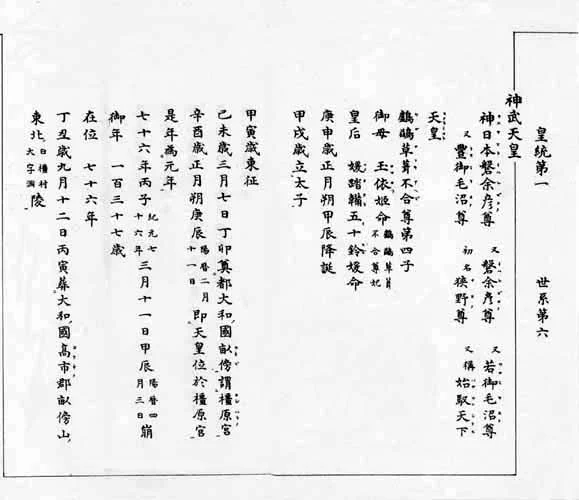 皇統第一 世系第六
神武天皇
神日本磐余彦尊 又 磐余彦尊 又 若御毛沼尊
又 豐御毛沼尊 初名 狹野尊 又稱 始馭天下
天皇
鸕鶿草葺不合尊第四子
御母 玉依姬命 鸕鶿草葺不合尊妃
皇后 媛蹈韛五十鈴媛命
庚申歳正月朔甲辰降誕
甲戌歳立太子
甲寅歳東征
己未歳三月七日丁卯奠都大和國畝傍謂橿原宮
辛酉歳正月朔庚辰 陽曆二月十一日 即天皇位於橿原宮
是年為元年
七十六年丙子 紀元七十六年 三月十一日甲辰 陽曆四月三日 崩
御年 一百三十七歳
在位 七十六年
丁丑歳九月十二日丙寅葬大和國高市郡畝傍山
東北 白橿村大字洞 陵